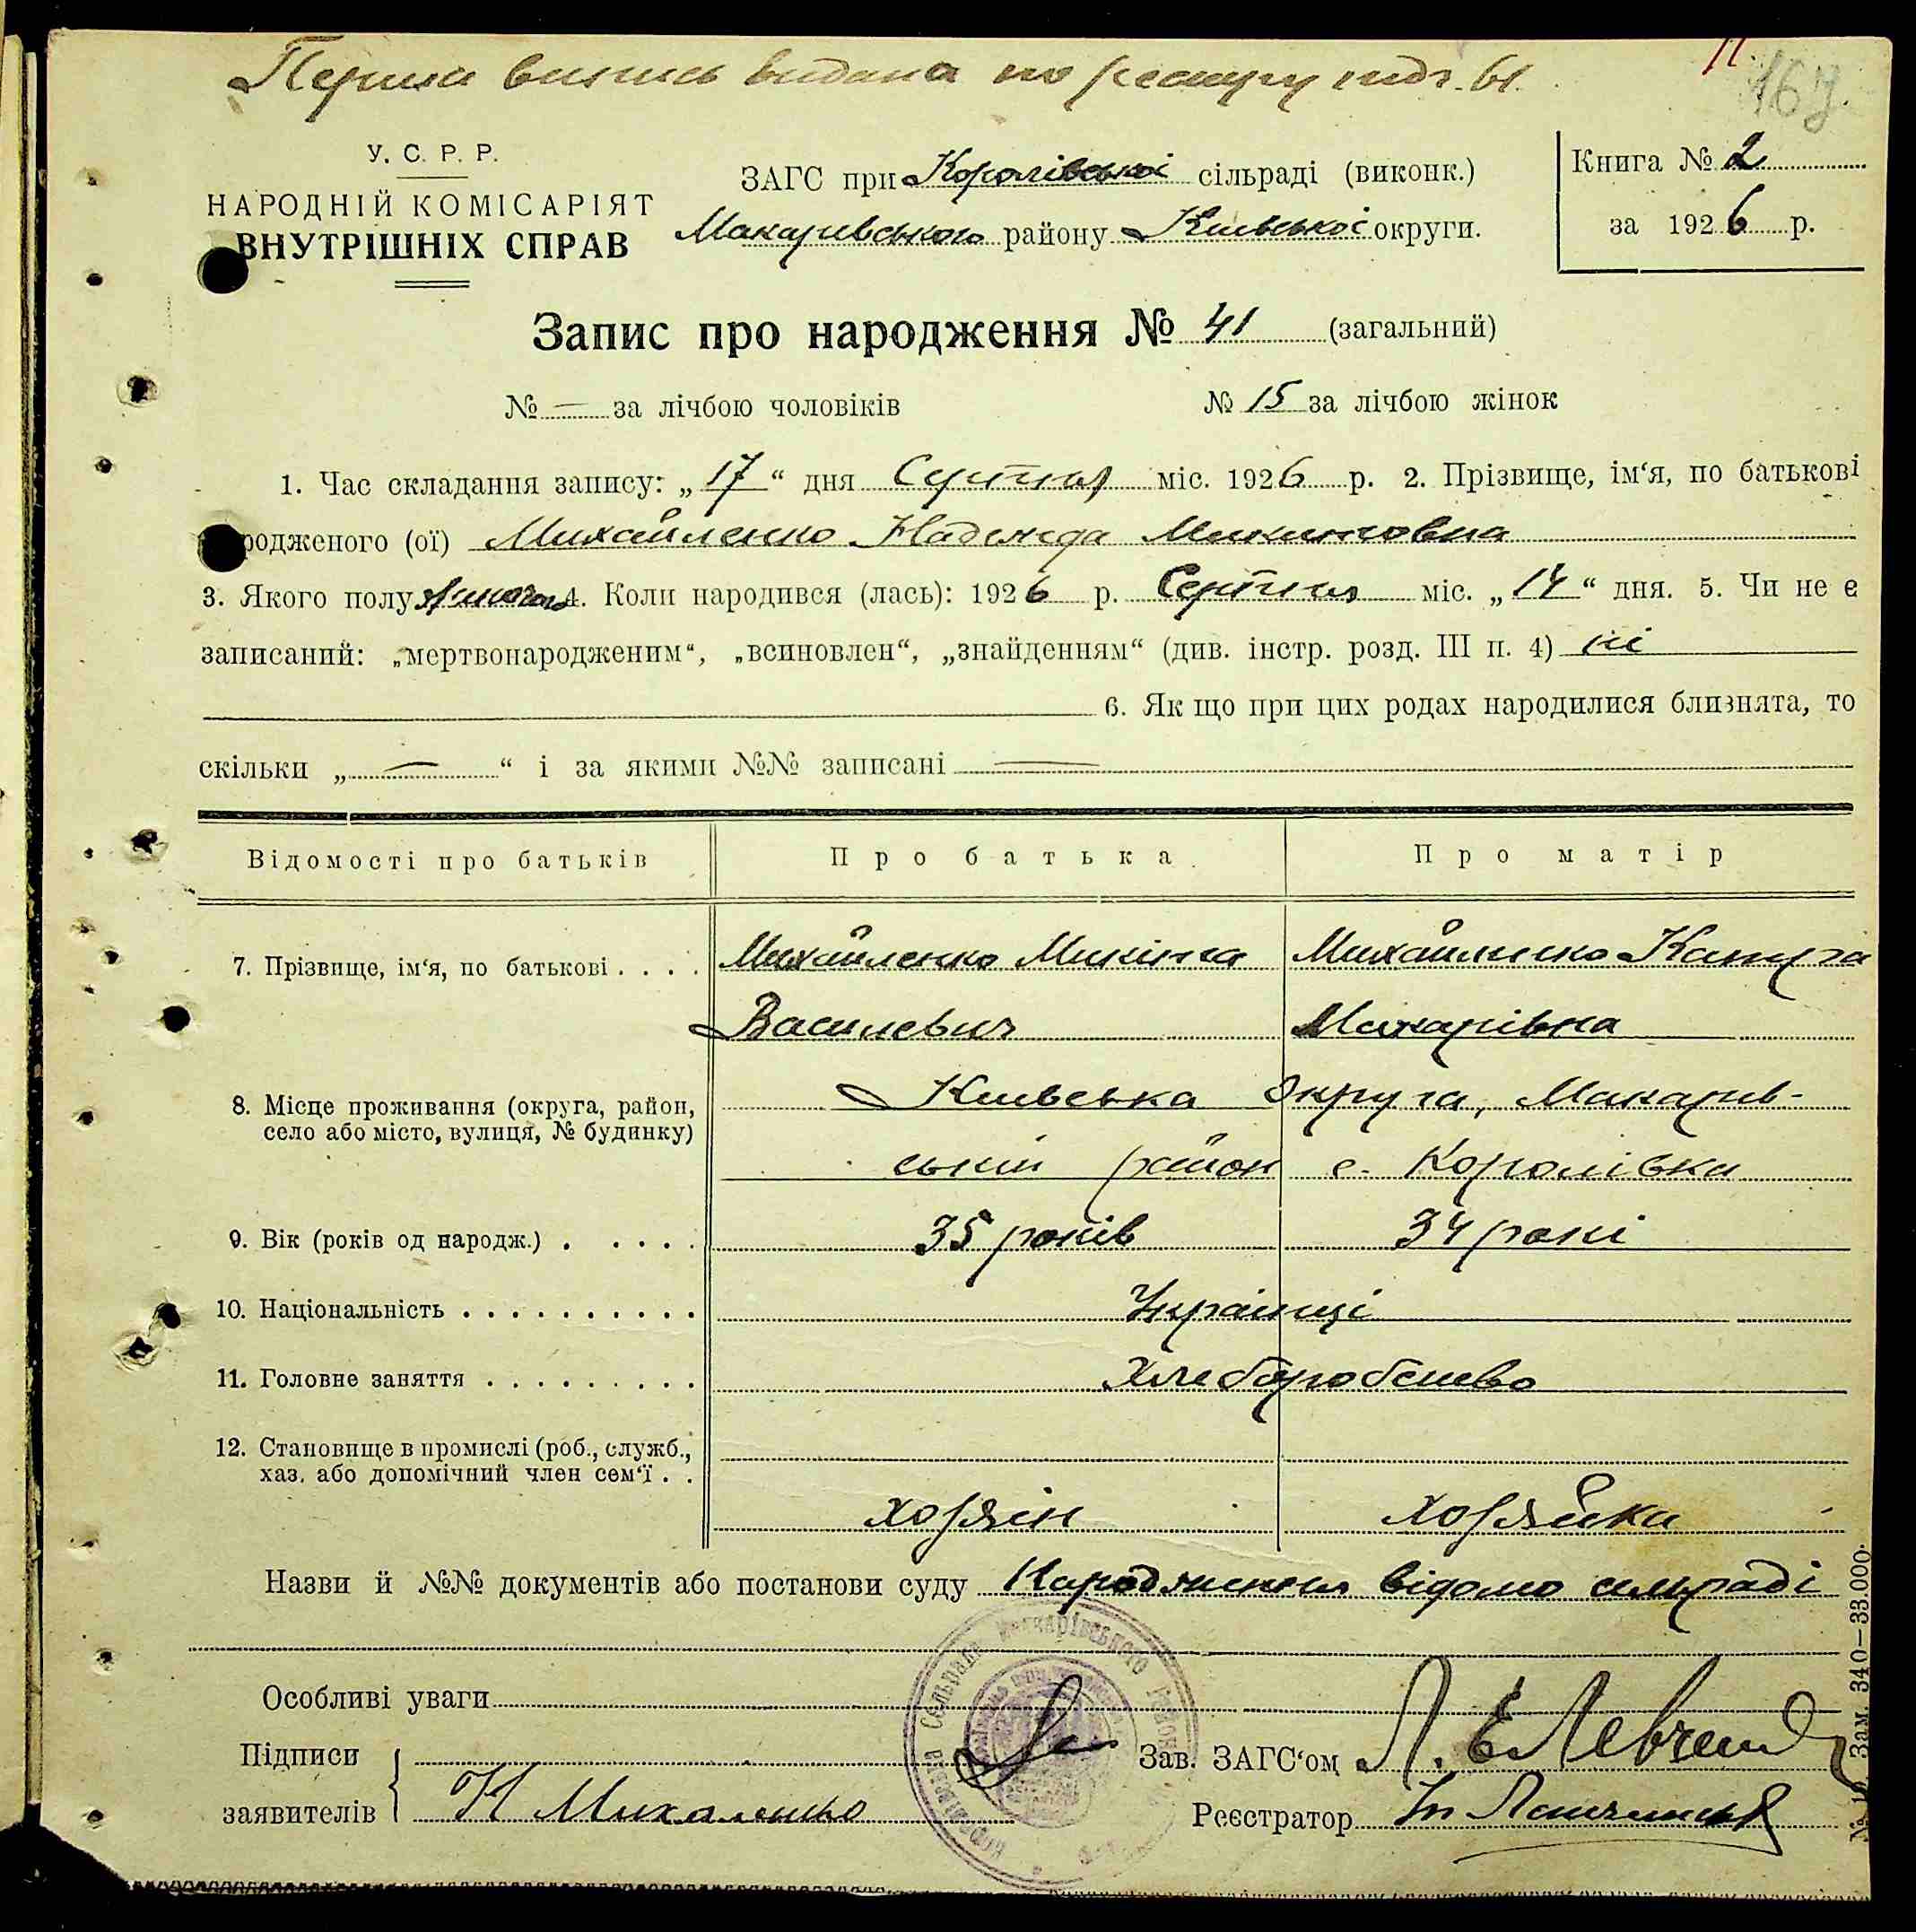 Перша випись видана по реєстру під № 61.
167.
У. С. Р. Р.
НАРОДНІЙ КОМІСАРІЯТ
ВНУТРІШНІХ СПРАВ
ЗАГС при Королівській сільраді (виконк.)
Макарівського району Київської округи.
Книга № 2
за 1926 р.
Запис про народження № 41 (загальний)
№ — за лічбою чоловіків № 15 за лічбою жінок
1. Час складання запису: „17“ дня Серпня міс. 1926 р. 2. Прізвище, ім'я, по батькові
родженого (ої) Михайленко Надежда Микитовна
3. Якого полу жиноч. 4. Коли народився (лась): 1926 р. Серпня міс. „14“ дня. 5. Чи не є
записаний: „мертвонародженим“, „всиновлен“, „знайденням“ (див. інстр. розд. III п. 4) ні
6. Як що при цих родах народилися близнята, то
скільки „—“ і за якими №№ записані —
Відомості про батьків Про батька Про матір
7. Прізвище, ім'я, по батькові . . . . Михайленко Микита Михайленко Катря
Василевич Макарівна
8. Місце проживання (округа, район, Київська округа, Макарив-
село або місто, вулиця, № будинку) ський район с. Королівка
9. Вік (років од народж.) . . . . . 35 років 34 рокі
10. Національність . . . . . . . . . . Українці
11. Головне заняття . . . . . . . . . Хлеборобство
12. Становище в промислі (роб., служб.,
хаз. або допомічний член сем'ї . .
хозяін хозяйка
Назви й №№ документів або постанови суду Народження відомо сільраді
Особливі уваги
Підписи Зав. ЗАГС'ом Л. Е Левченко
заявителів Н Михаленко Реєстратор
Зам. 340—33.000.
Сільрада Макарівського